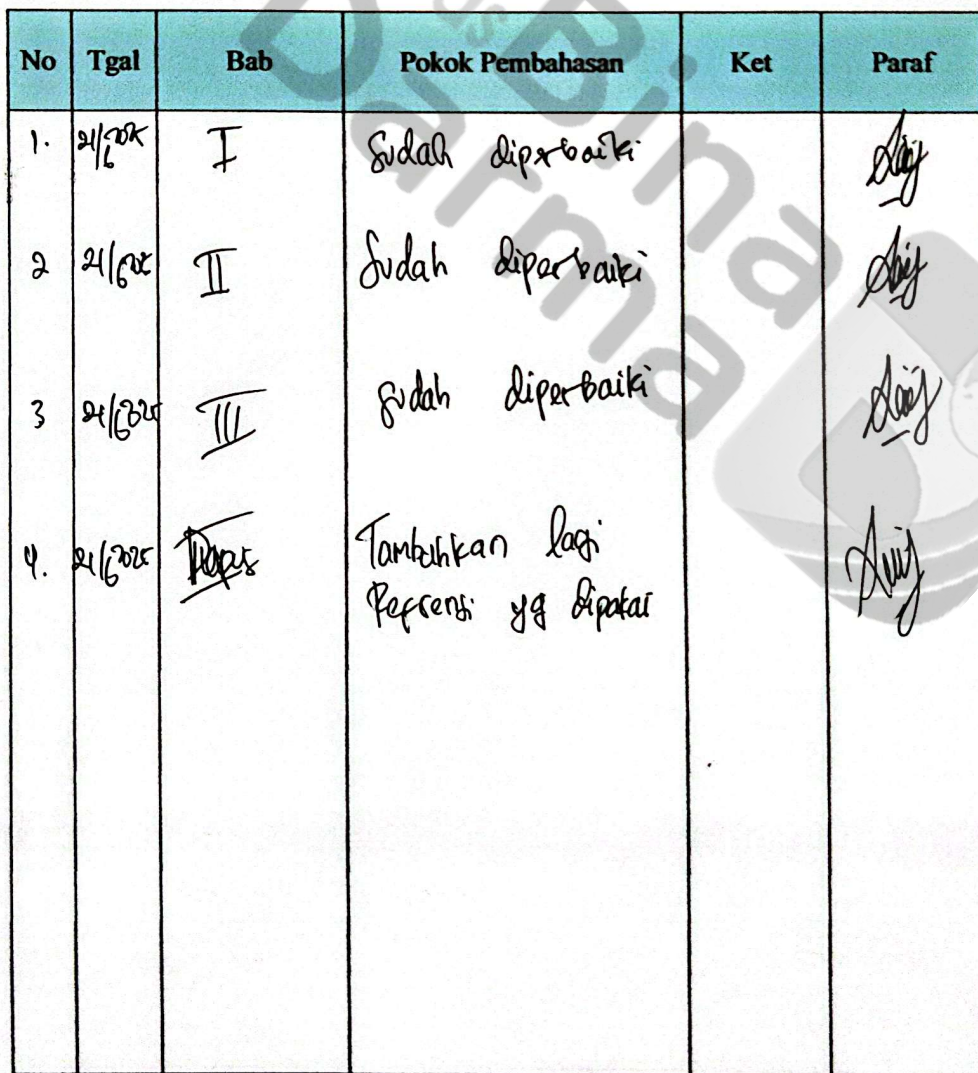 Bina
Darma
No Tgal Bab Pokok Pembahasan Ket Paraf
1. 21/6 2025 I Sudah diperbaiki
2 21/6 2025 II Sudah diperbaiki
3 21/6 2025 III Sudah diperbaiki
4. 21/6 2025 Tambahkan lagi
Refrensi yg dipakai